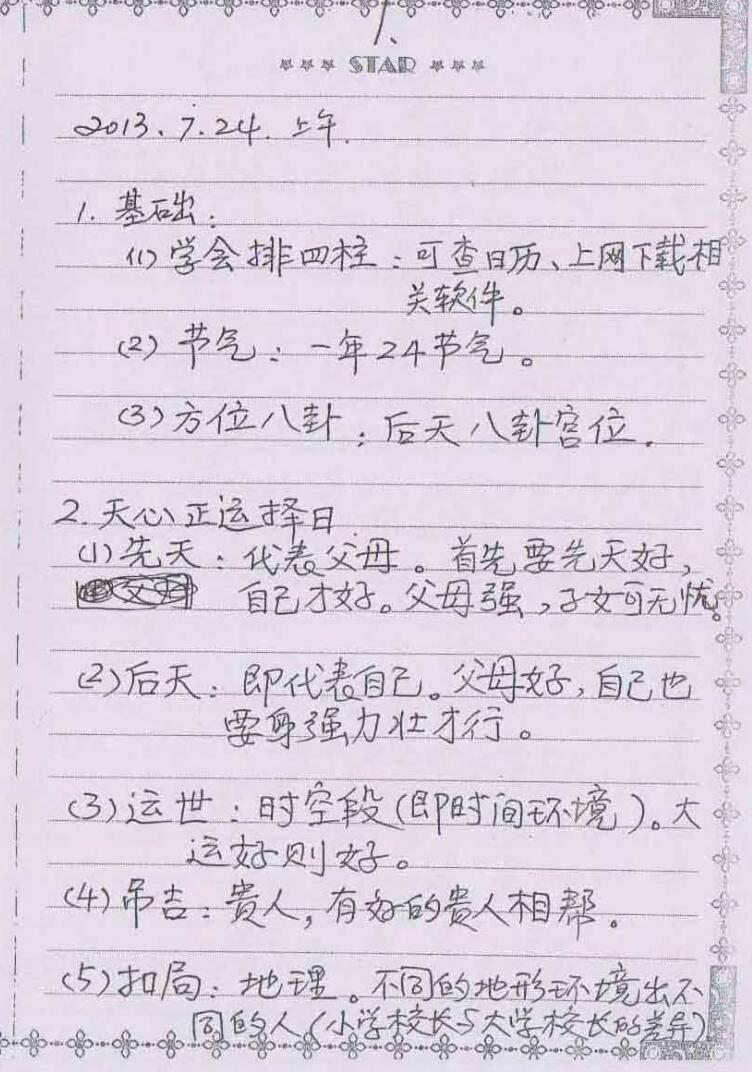 1、
STAR
2013.7.24.上午.
1. 基础:
(1) 学会排四柱:可查日历、上网下载相
关软件。
(2) 节气:一年24节气。
(3) 方位八卦:后天八卦宫位.
2. 天心正运择日
(1) 先天:代表父母。首先要先天好,
自己才好。父母强,子女可无忧。
(2) 后天:即代表自己。父母好,自己也
要身强力壮才行。
(3) 运世:时空段(即时间环境)。大
运好则好。
(4) 吊吉:贵人,有好的贵人相帮。
(5) 扣局:地理。不同的地形环境出不
同的人(小学校长与大学校长的差异)